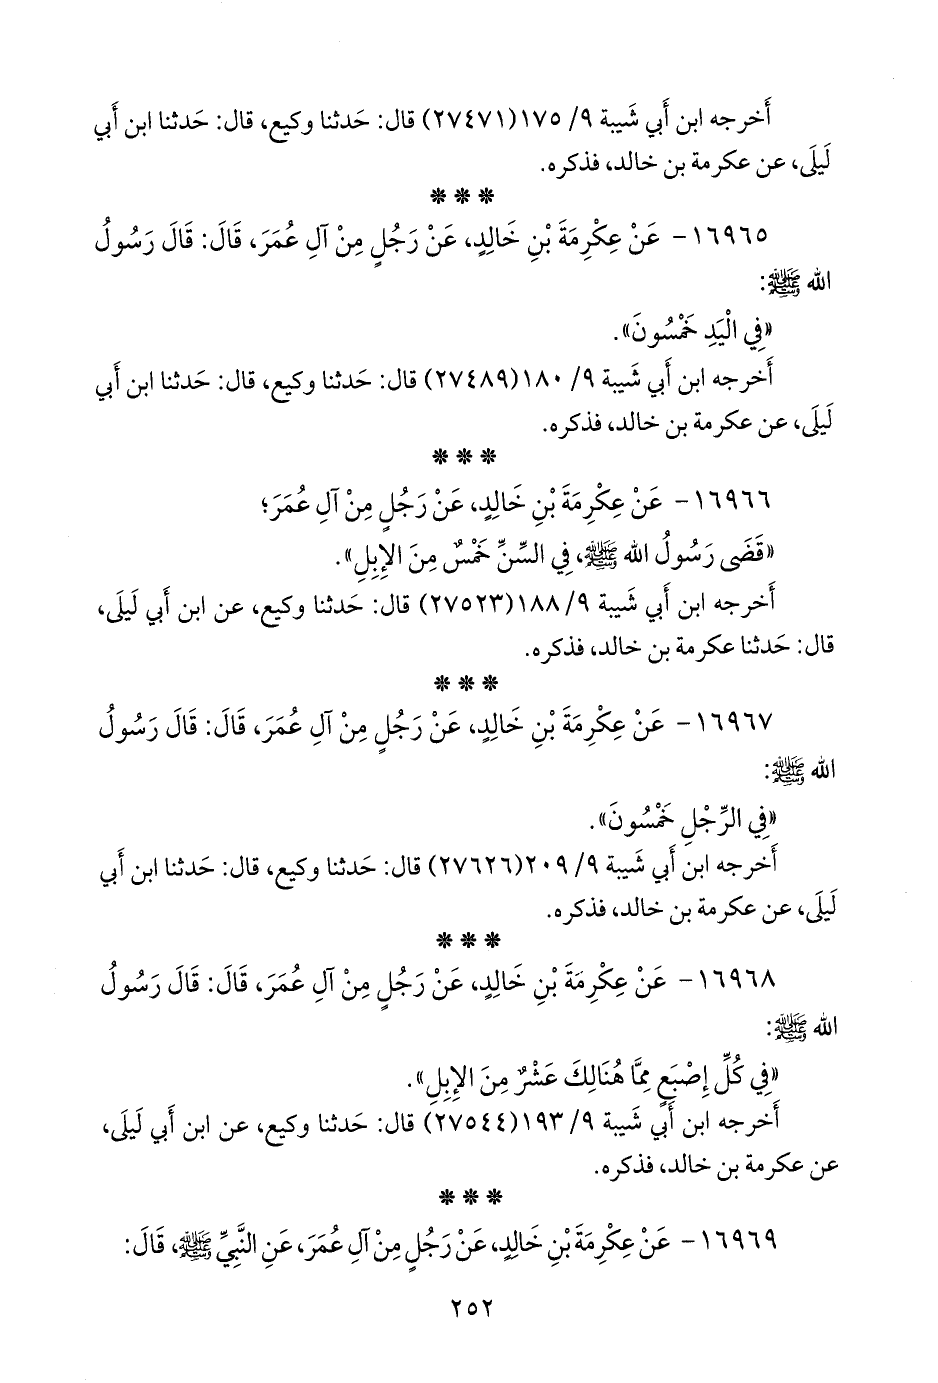 أَخرجه ابن أَبي شَيبة ٩/ ١٧٥(٢٧٤٧١) قال: حَدثنا وكيع، قال: حَدثنا ابن أَبي
لَيلَى، عن عكرمة بن خالد، فذكره.
❋ ❋ ❋
١٦٩٦٥ – عَنْ عِكْرِمَةَ بْنِ خَالِدٍ، عَنْ رَجُلٍ مِنْ آلِ عُمَرَ، قَالَ: قَالَ رَسُولُ
الله ﷺ:
«فِي الْيَدِ خَمْسُونَ».
أَخرجه ابن أَبي شَيبة ٩/ ١٨٠(٢٧٤٨٩) قال: حَدثنا وكيع، قال: حَدثنا ابن أَبي
لَيلَى، عن عكرمة بن خالد، فذكره.
❋ ❋ ❋
١٦٩٦٦ – عَنْ عِكْرِمَةَ بْنِ خَالِدٍ، عَنْ رَجُلٍ مِنْ آلِ عُمَرَ؛
«قَضَى رَسُولُ الله ﷺ، فِي السِّنِّ خَمْسٌ مِنَ الإِبِلِ».
أَخرجه ابن أَبي شَيبة ٩/ ١٨٨(٢٧٥٢٣) قال: حَدثنا وكيع، عن ابن أَبي لَيلَى،
قال: حَدثنا عكرمة بن خالد، فذكره.
❋ ❋ ❋
١٦٩٦٧ – عَنْ عِكْرِمَةَ بْنِ خَالِدٍ، عَنْ رَجُلٍ مِنْ آلِ عُمَرَ، قَالَ: قَالَ رَسُولُ
الله ﷺ:
«فِي الرِّجْلِ خَمْسُونَ».
أَخرجه ابن أَبي شَيبة ٩/ ٢٠٩(٢٧٦٢٦) قال: حَدثنا وكيع، قال: حَدثنا ابن أَبي
لَيلَى، عن عكرمة بن خالد، فذكره.
❋ ❋ ❋
١٦٩٦٨ – عَنْ عِكْرِمَةَ بْنِ خَالِدٍ، عَنْ رَجُلٍ مِنْ آلِ عُمَرَ، قَالَ: قَالَ رَسُولُ
الله ﷺ:
«فِي كُلِّ إِصْبَعٍ مِمَّا هُنَالِكَ عَشْرٌ مِنَ الإِبِلِ».
أَخرجه ابن أَبي شَيبة ٩/ ١٩٣(٢٧٥٤٤) قال: حَدثنا وكيع، عن ابن أَبي لَيلَى،
عن عكرمة بن خالد، فذكره.
❋ ❋ ❋
١٦٩٦٩ – عَنْ عِكْرِمَةَ بْنِ خَالِدٍ، عَنْ رَجُلٍ مِنْ آلِ عُمَرَ، عَنِ النَّبِيِّ ﷺ، قَالَ:
٢٥٢